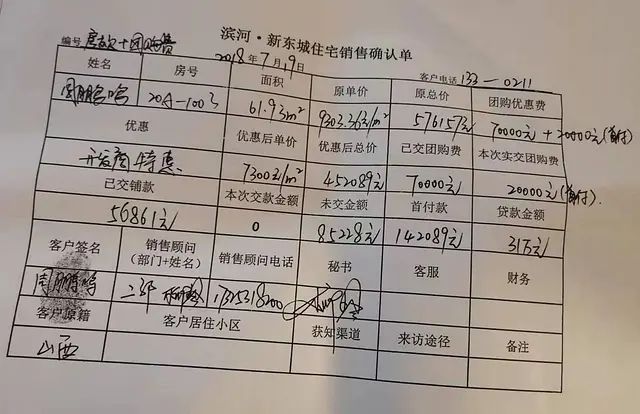 滨河·新东城住宅销售确认单
编号 房款+团购费 2018年7月19日 客户电话 133—0211
姓名 房号 面积 原单价 原总价 团购优惠费
20A-1003 61.93m² 9303.3元/m² 576157元 70000元+20000元(首付)
优惠 优惠后单价 优惠后总价 已交团购费 本次实交团购费
开发商特惠 7300元/m² 452089元 70000元 20000元(首付).
已交铺款 本次交款金额 未交金额 首付款 贷款金额
56861元 0 85228元 142089元 31万元
客户签名 销售顾问(部门+姓名) 销售顾问电话 秘书 客服 财务
二部 17325318200
客户原籍 客户居住小区 获知渠道 来访途径 备注
山西